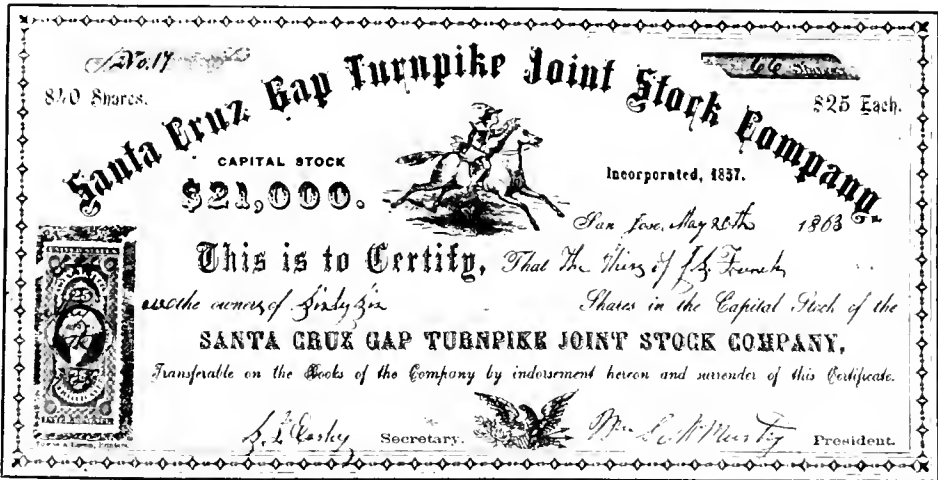 No. 17
66 Shares
840 Shares.
$25 Each.
Santa Cruz Gap Turnpike Joint Stock Company.
CAPITAL STOCK
$21,000.
Incorporated, 1857.
San Jose, May 20th 1863
This is to Certify, That The Heirs of
are the owners of Sixty Six Shares in the Capital Stock of the
SANTA CRUZ GAP TURNPIKE JOINT STOCK COMPANY,
Transferable on the Books of the Company by indorsement hereon and surrender of this Certificate.
Secretary.
President.